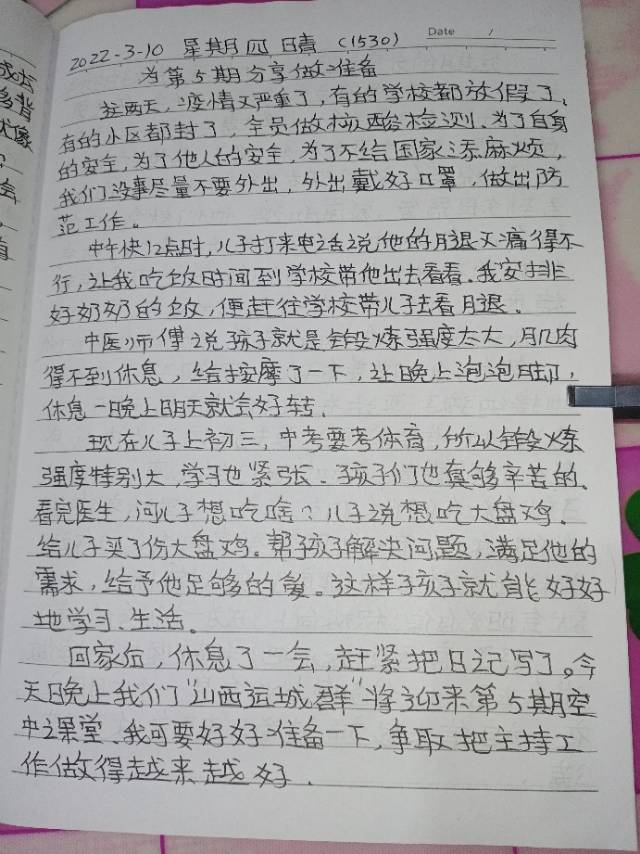 Date /
2022-3-10 星期四 晴 (1530)
为第5期分享做准备
这两天,疫情又严重了,有的学校都放假了,
有的小区都封了,全员做核酸检测、为了自身
的安全,为了他人的安全,为了不给国家添麻烦,
我们没事尽量不要外出,外出戴好口罩,做出防
范工作。
中午快12点时,儿子打来电话说他的腿又痛得不
行,让我吃饭时间到学校带他出去看看.我安排
好奶奶的饭,便赶往学校带儿子去看腿.
中医师傅说孩子就是锻炼强度太大,肌肉
得不到休息,给按摩了一下,让晚上泡泡脚,
休息一晚上明天就会好转.
现在儿子上初三,中考要考体育,所以锻炼
强度特别大,学习也紧张.孩子们也真够辛苦的.
看完医生,问儿子想吃啥?儿子说想吃大盘鸡.
给儿子买了份大盘鸡。帮孩子解决问题,满足他的
需求,给予他足够的爱。这样子孩子就能好好
地学习、生活。
回家后,休息了一会,赶紧把日记写了。今
天晚上我们"山西运城群"将迎来第5期空
中课堂、我可要好好准备一下,争取把主持工
作做得越来越好.